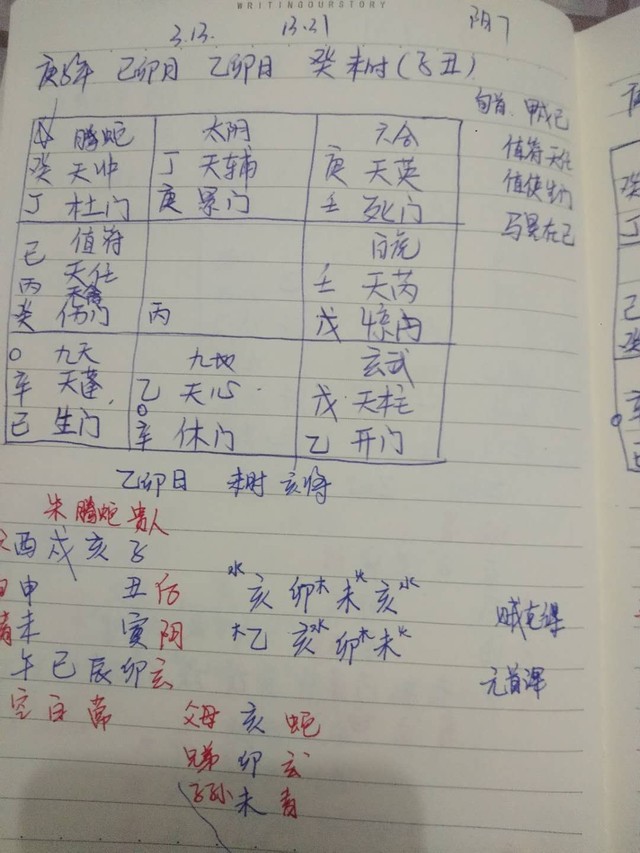 WRITINGOURSTORY
3.13. 13.21 阴7
庚子年 己卯月 乙卯日 癸未时(子丑)
旬首、甲戌己
值符天任
值使生门
马星在巳
腾蛇 太阴 六合
癸 天冲 丁 天辅 庚 天英
丁 杜门 庚 景门 壬 死门
己 值符 白虎
丙 天任 壬 天芮
天禽
癸 伤门 丙 戊 惊门
○ 九天 九地 玄武
辛 天蓬 乙 天心 戊 天柱
○
己 生门 辛 休门 乙 开门
乙卯日 未时 亥将
朱 腾蛇 贵人
酉 戌 亥 子
申 丑 后 水亥 卯木 未火 亥水 贼克课
青 未 寅 阴 木乙 亥水 卯木 未火
午 巳 辰 卯 玄 元首课
空 白 常 父母 亥 蛇
兄弟 卯 玄
子孙 未 青